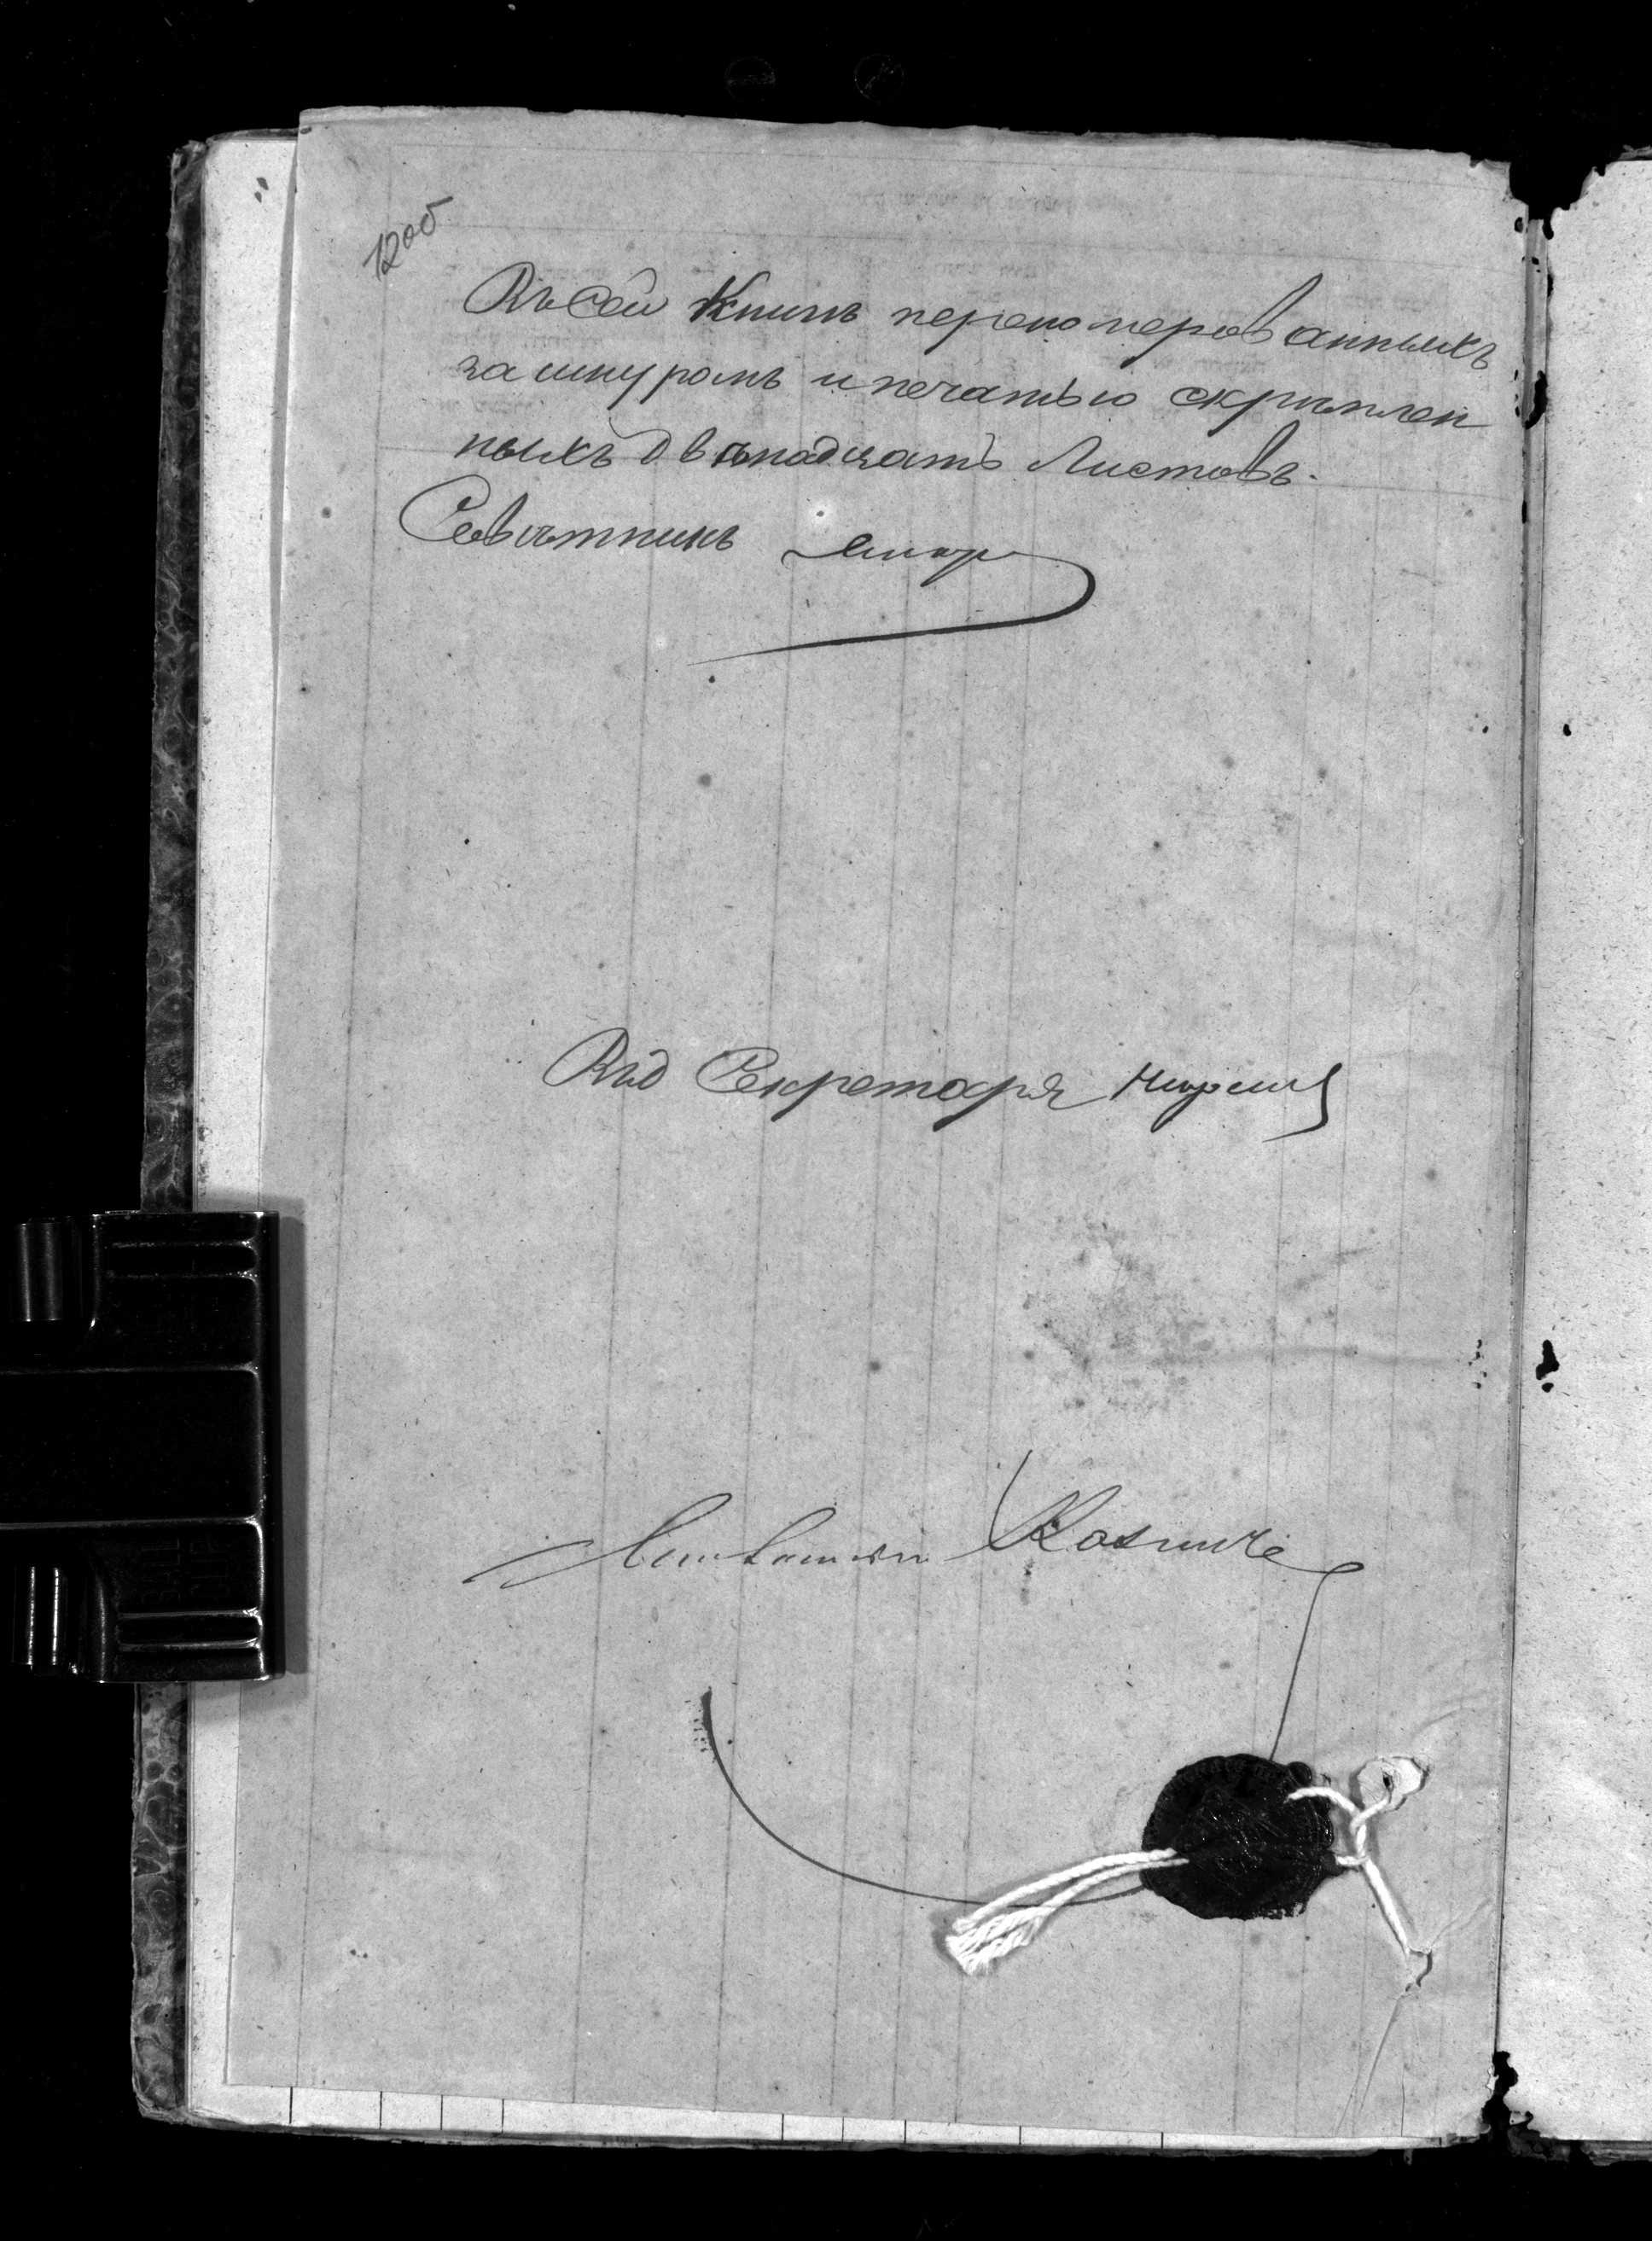 12об
Въ сей Книгѣ переномерованныхъ
за шнуромъ и печатью скрѣплен
ныхъ двѣнадцать Листовъ.
Совѣтникъ
Вмд Секретаря